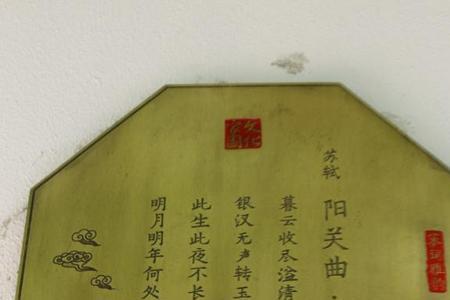 苏轼
阳关曲·
暮云收尽溢清
银汉无声转玉
此生此夜不长
明月明年何处
文化